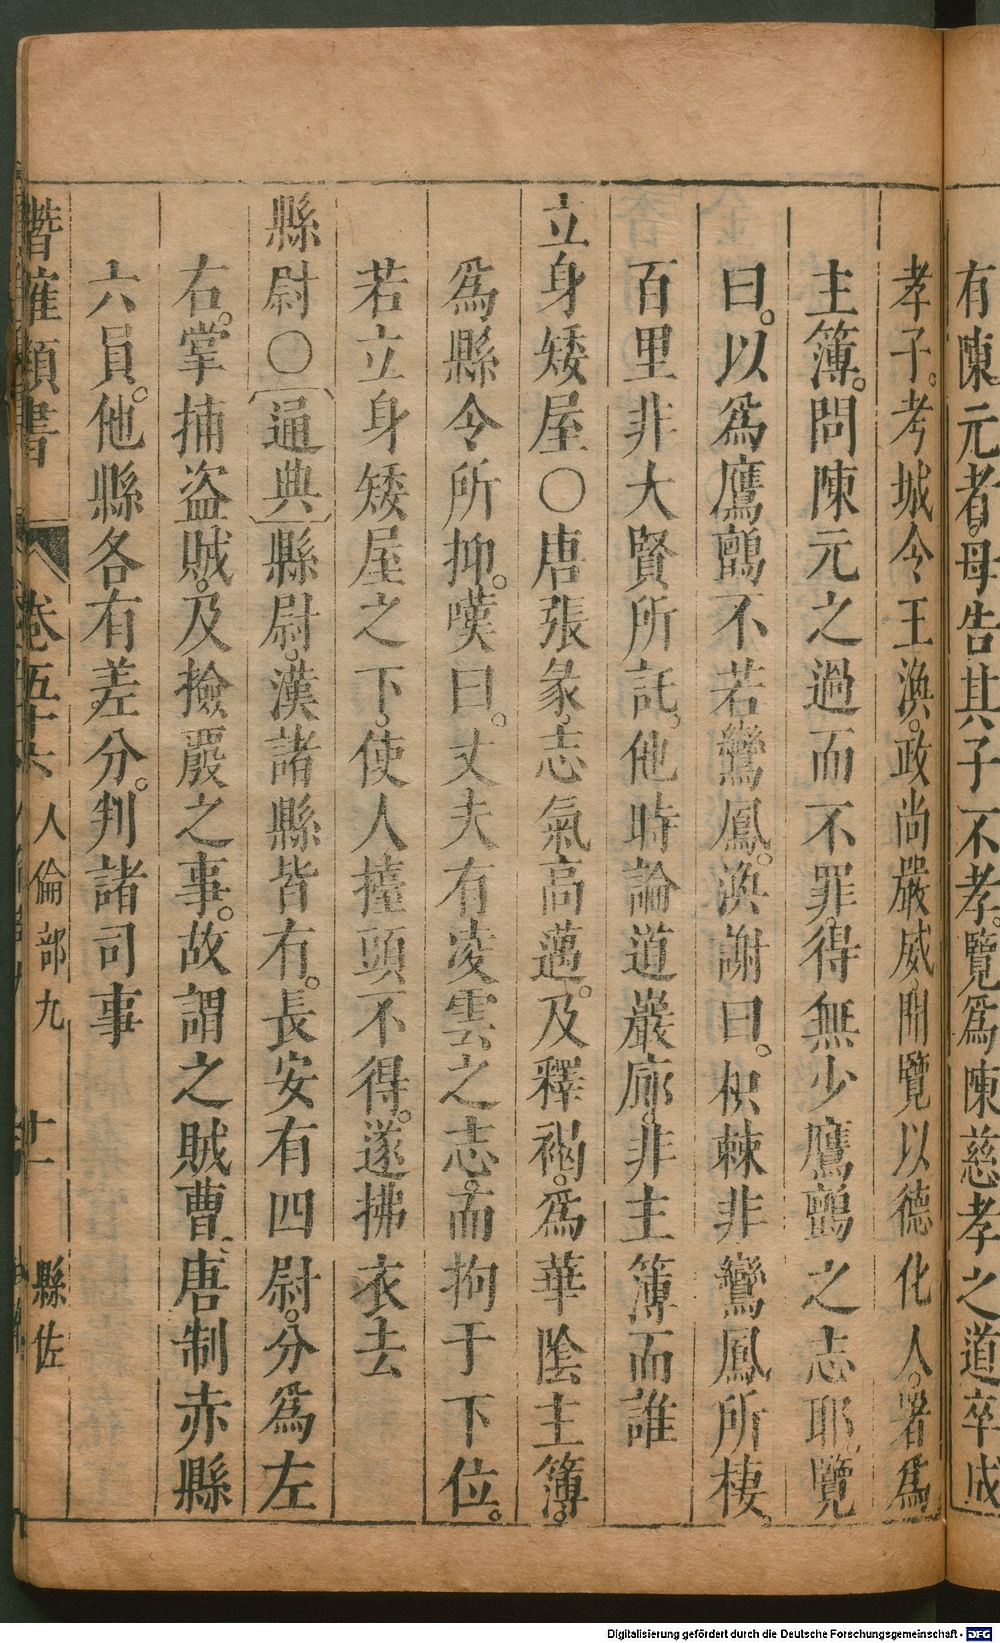 有陳元者。母告其子不孝。覽爲陳慈孝之道卒成
孝子。考城令王渙。政尚嚴威。聞覽以德化人。署爲
主簿。問陳元之過而不罪。得無少鷹鸇之志耶。覽
曰。以爲鷹鸇不若鸞鳳。渙謝曰。枳棘非鸞鳳所棲。
百里非大賢所託。他時論道巖廊。非主簿而誰
立身矮屋○唐張彖。志氣高邁。及釋褐。爲華陰主簿。
爲縣令所抑。嘆曰。丈夫有凌雲之志。而拘于下位。
若立身矮屋之下。使人擡頭不得。遂拂衣去
縣尉○〔通典〕縣尉。漢諸縣皆有。長安有四尉。分爲左
右。掌捕盗賊。及撿嚴之事。故謂之賊曹、唐制赤縣
六員。他縣各有差。分。判諸司事
潛確類書 卷五十六 人倫部九 十一 縣佐
Digitalisierung gefördert durch die Deutsche Forschungsgemeinschaft - DFG